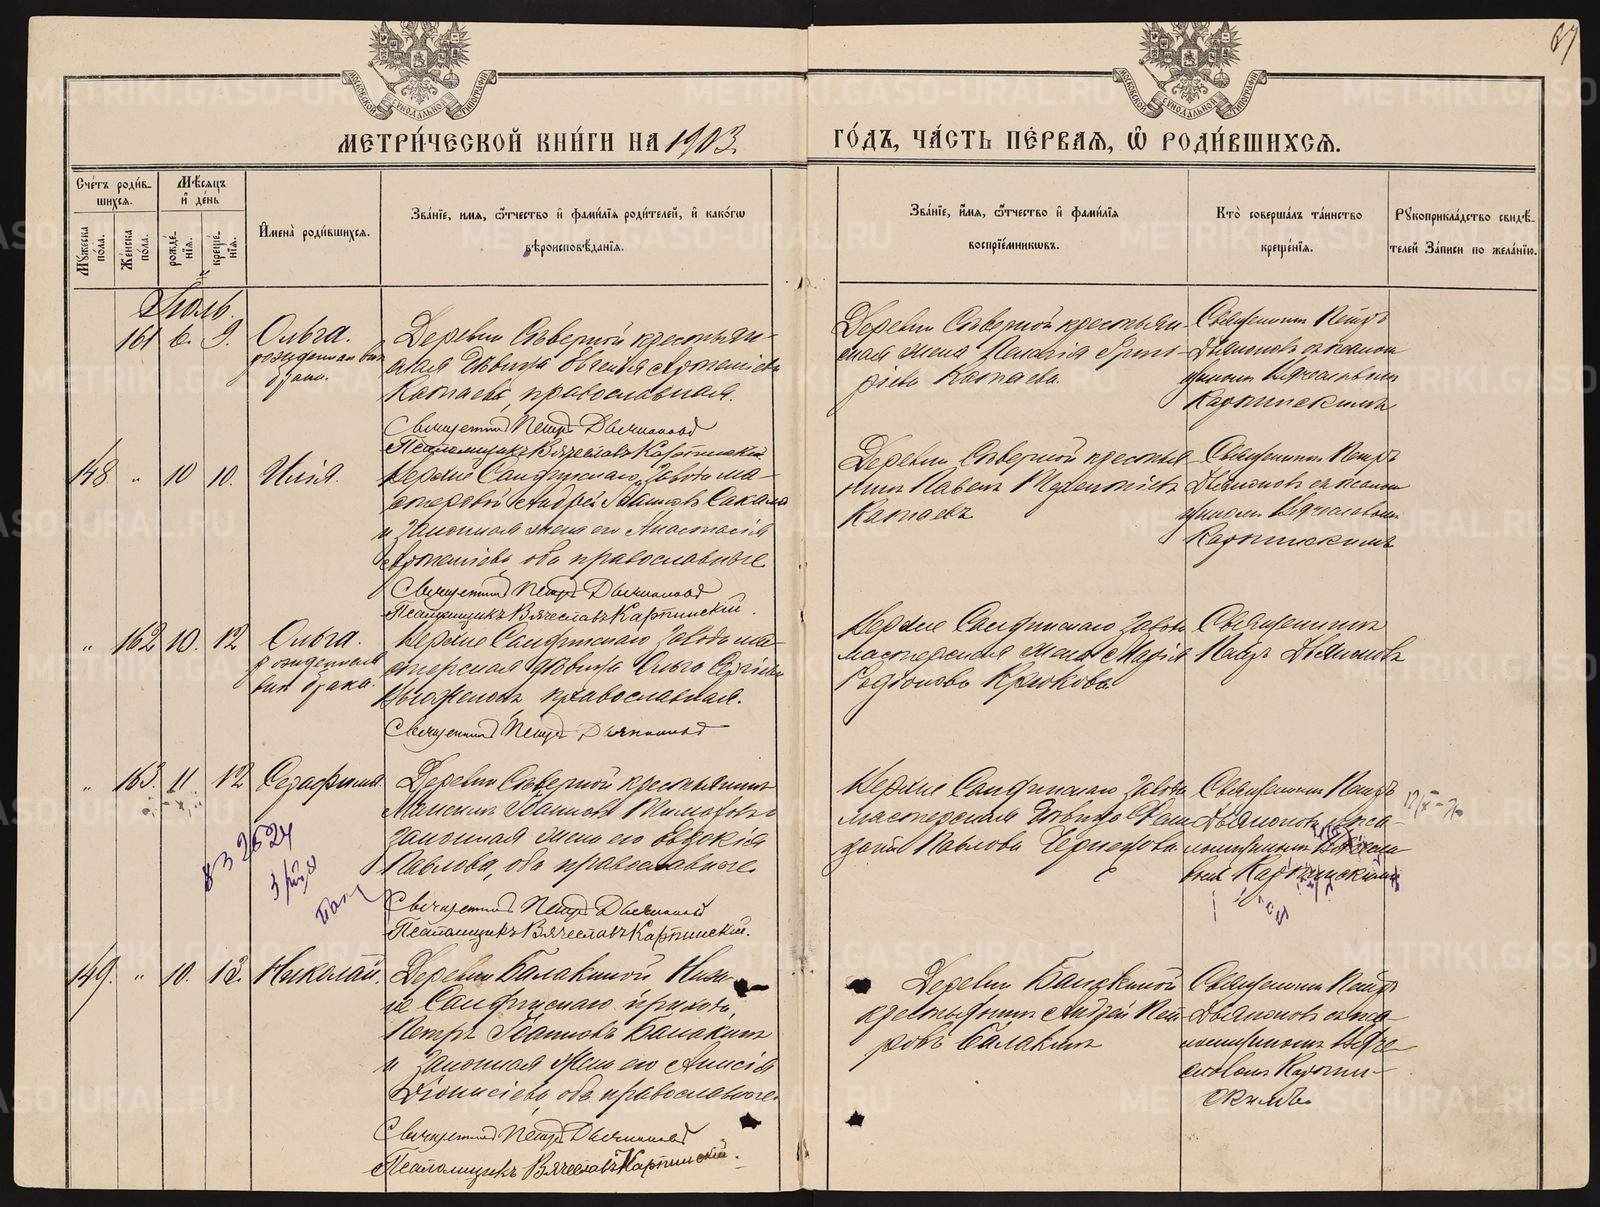 67
МЕТРИ́ЧЕСКОЙ КНИ́ГИ НА 1903
ГО́ДЪ, ЧА́СТЬ ПЕ́РВАЯ, Ѽ РОДИ́ВШИХСЯ.
Сче́тъ роди́в-
шихся.
Мѣ́сяцъ
и҆ де́нь
Мꙋ́жеска по́ла.
Же́нска по́ла.
рожде́нїя.
креще́нїя.
И҆мена̀ роди́вшихся.
Зва́нїе, и҆мя, ѻ҆́тчество и҆ фами́лїя роди́телей, и҆ како́гѡ
вѣроисповѣ́данїя.
Зва́нїе, и҆́мя, ѻ҆́тчество и҆ фами́лїя
воспрїе́мникѡвъ.
Кто̀ соверша́лъ та́инство
креще́нїя.
Рꙋкоприкла́дство свидѣ́-
телей За́писи по жела́нїю.
Іюль.
161 6. 9.
Ольга.
рожденная внѣ
брака.
Деревни Сѣверной крестьян-
ская дѣвица Евгенія Артеміева
Катаева, православная.
Священникъ Петръ Дьяконовъ
Псаломщикъ Вячеславъ Карпинскій
Деревни Сѣверной крестьян-
ская жена
Катаева.
Священникъ Петръ
Дьяконовъ съ псалом
щикомъ Вячеславомъ
Карпинскимъ
148 „ 10 10.
Илія.
Верхне Салдинскаго завода ма-
стеровой Андрей
и законная жена его Анастасія
Артеміева, оба православные
Священникъ Петръ Дьяконовъ
Псаломщикъ Вячеславъ Карпинскій.
Деревни Сѣверной крестья-
нинъ Павелъ
Катаевъ
Священникъ Петръ
Дьяконовъ съ псалом
щикомъ Вячеславомъ
Карпинскимъ
„ 162 10. 12
Ольга.
рожденная
внѣ брака.
Верхне Салдинскаго завода ма-
стерская дѣвица Ольга
православная.
Священникъ Петръ Дьяконовъ
Верхне Салдинскаго завода
мастерская жена Марія
Родіонова Крюкова
Священникъ
Петръ Дьяконовъ
„ 163. 11. 12
Серафима.
Деревни Сѣверной крестьянинъ
и
законная жена его Евдокія
Павлова, оба православные.
Священникъ Петръ Дьяконовъ
Псаломщикъ Вячеславъ Карпинскій.
Верхне Салдинскаго завода
мастерская дѣвица
Павлова
Священникъ Петръ
Дьяконовъ съ пса-
ломщикомъ Вячесла-
вомъ Карпинскимъ
149. „ 10. 13.
Николай.
Деревни Балакиной Ниж-
не Салдинскаго прихода,
Петръ Іоанновъ Балакинъ
и законная жена его Анисія
Діонисіева, оба православные.
Священникъ Петръ Дьяконовъ
Псаломщикъ Вячеславъ Карпинскій.
Деревни Балакиной
крестьянинъ Андрей Пет-
ровъ Балакинъ
Священникъ Петръ
Дьяконовъ съ пса-
ломщикомъ Вяче-
славомъ Карпин-
скимъ.
METRIKI.GASO-URAL.RU